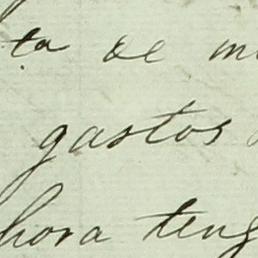 ta de m
gastos
hora teng